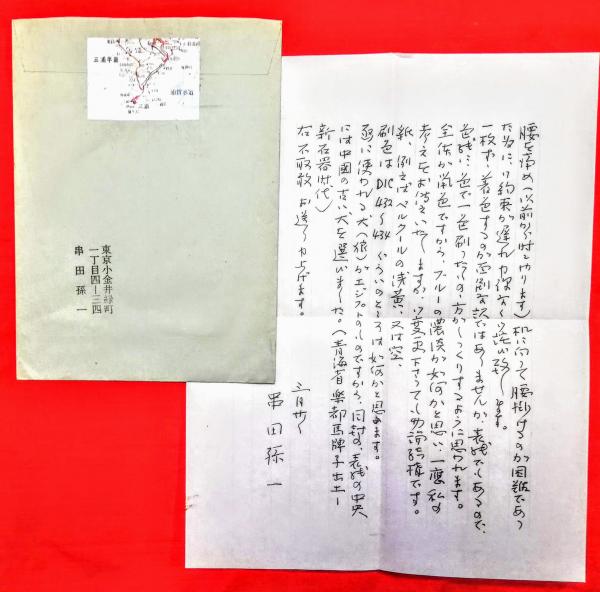 腰を痛め(以前から時々やります)机に向って腰掛けるのが困難であつ
た為に、御約束が遅れ申訳なく御詫び致します。
一枚ずつ着色するのが面倒な訳ではありませんが、表紙でもあるので、
色紙に一色刷ったものの方がしっくりするように思われます。
全体が単色ですから、ブルーの濃淡が如何かと思い、一応私の
考えをお伝えいたしますが、御変更下さっても勿論結構です。
紙、例えばベルクールの浅黄、又は空、
刷色は DIC 432〜434 ぐらいのところは如何かと思います。
扉に使われる犬(狼)がエジプトのものですから、同封の、表紙の中央
には中国の古い犬を選びました。(青海省楽都馬牌子出土ー
新石器時代)
右不取敢お送り申上げます。
三月廿
串田孫一
三浦半島
東京小金井緑町
一丁目四ー三四
串田孫一